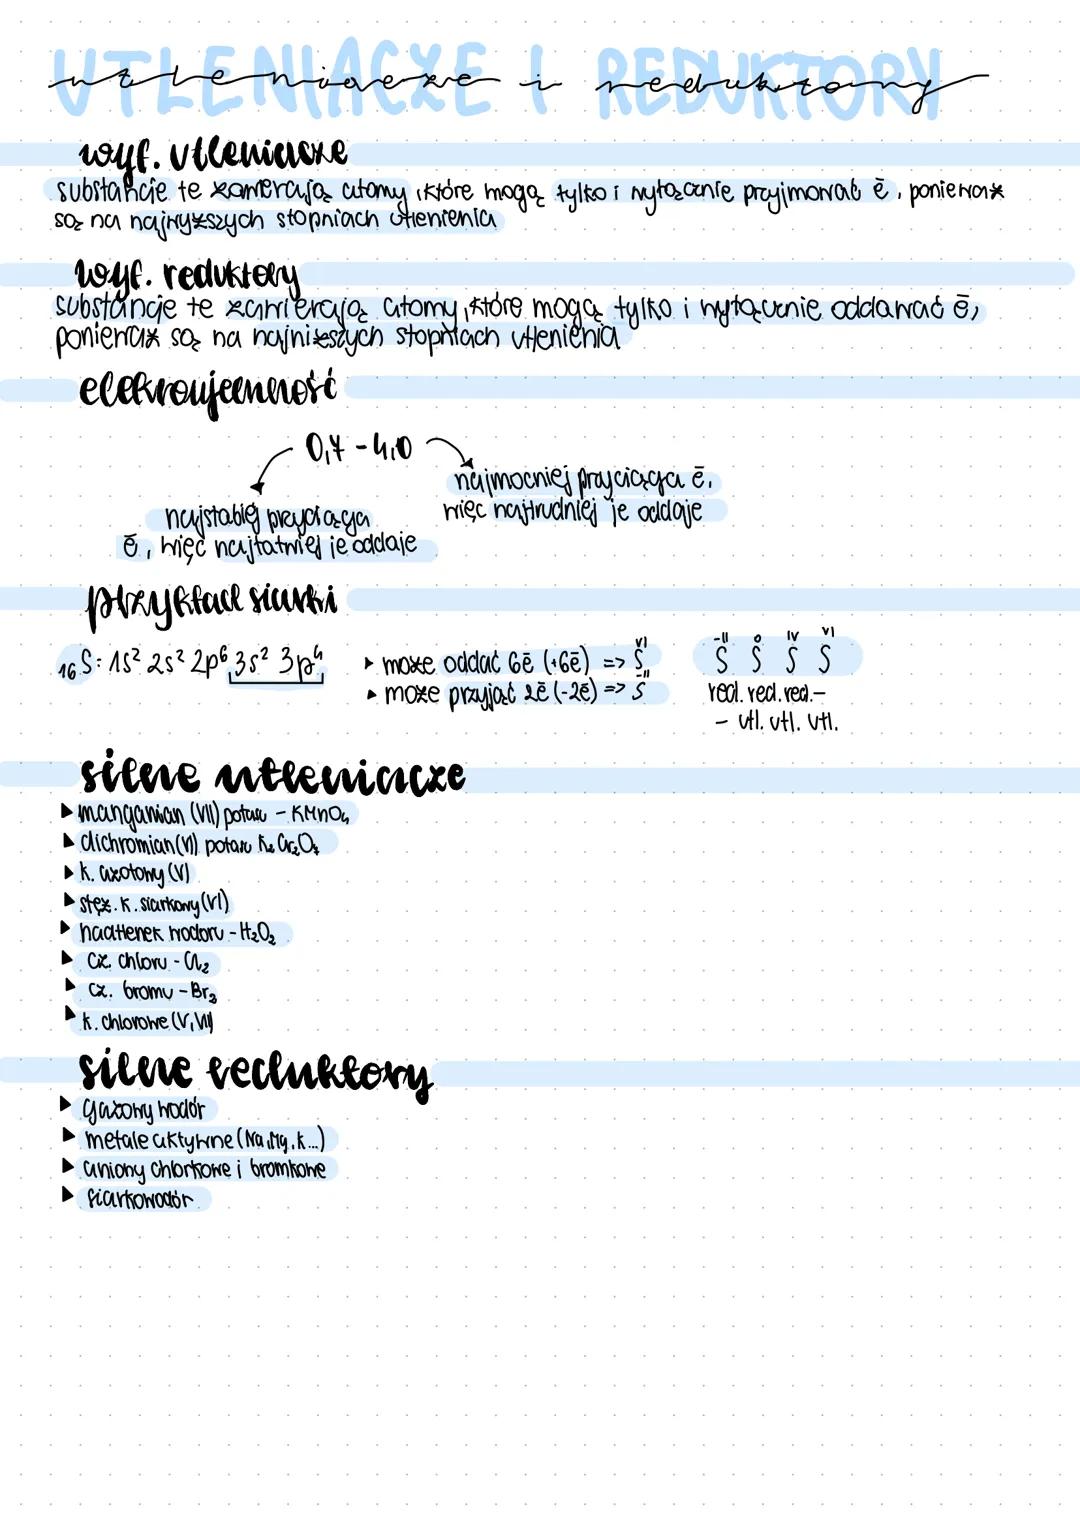 UTLENIACZE I REDUKTORY
utleniacze i reduktory
wył. utleniacze
substancje te zawierają atomy, które mogą tylko i wyłącznie przyjmować ē, ponieważ
są na najwyższych stopniach utlenienia
wył. reduktory
substancje te zawierają atomy, które mogą tylko i wyłącznie oddawać ē,
ponieważ są na najniższych stopniach utlenienia
elekroujemność
0,7 - 4,0
najmocniej przyciąga ē,
więc najtrudniej je oddaje
najsłabiej przyciąga
ē, więc najłatwiej je oddaje
przykład siarki
₁₆S: 1s² 2s² 2p⁶ 3s² 3p⁴
▸ może oddać 6ē (+6ē) => S VI
▸ może przyjąć 2ē (-2ē) => S -II
-II 0 IV VI
S S S S
red. red. red. –
– utl. utl. utl.
silne utleniacze
▸ manganian (VII) potasu - KMnO₄
▸ dichromian (VI) potasu K₂Cr₂O₇
▸ k. azotowy (V)
▸ stęż. k. siarkowy (VI)
▸ nadtlenek wodoru - H₂O₂
▸ cz. chloru - Cl₂
▸ cz. bromu - Br₂
▸ k. chlorowe (V, VII)
silne reduktory
▸ gazowy wodór
▸ metale aktywne (Na, Mg, K...)
▸ aniony chlorkowe i bromkowe
▸ siarkowodór